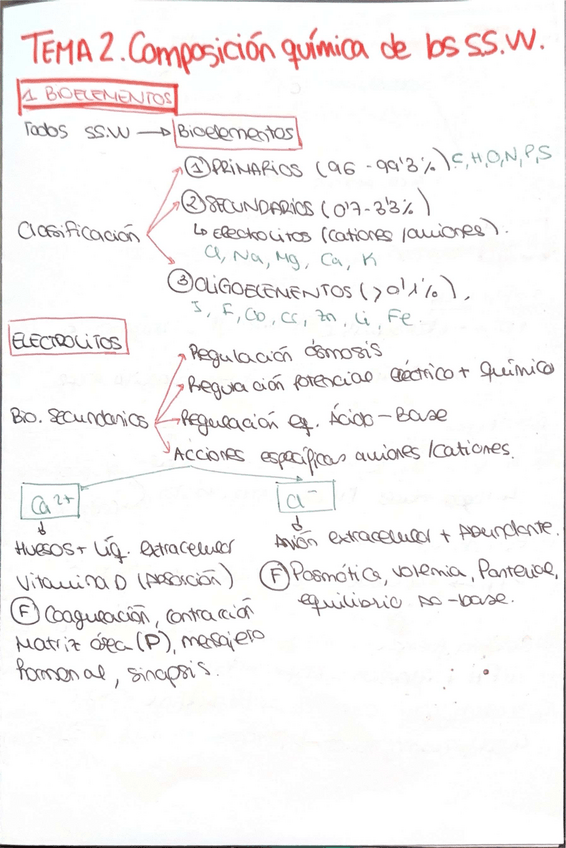 TEMA 2. Composición química de los SS.VV.
1 BIOELEMENTOS
Todos SS.VV → Bioelementos
① PRIMARIOS (96 - 99'3%). C, H, O, N, P, S
② SECUNDARIOS (0'7 - 3'3%)
↳ Electrolitos (cationes / aniones).
Cl, Na, Mg, Ca, K
Clasificación
③ OLIGOELEMENTOS (>0'1%).
I, F, Co, Cr, Zn, Li, Fe
ELECTROLITOS
Regulación ósmosis
Regulación potencial eléctrico + químico
Bio. Secundarios
Regulación eq. Ácido - Base
Acciones específicas aniones / cationes.
Ca²⁺
Cl⁻
Huesos + Líq. extracelular
Vitamina D (Absorción)
Ⓕ Coagulación, contracción
Matriz ósea (P), mensajero
hormonal, sinapsis.
Anión extracelular + Abundante.
Ⓕ Posmótica, volemia, Parterial,
equilibrio Ao-base.